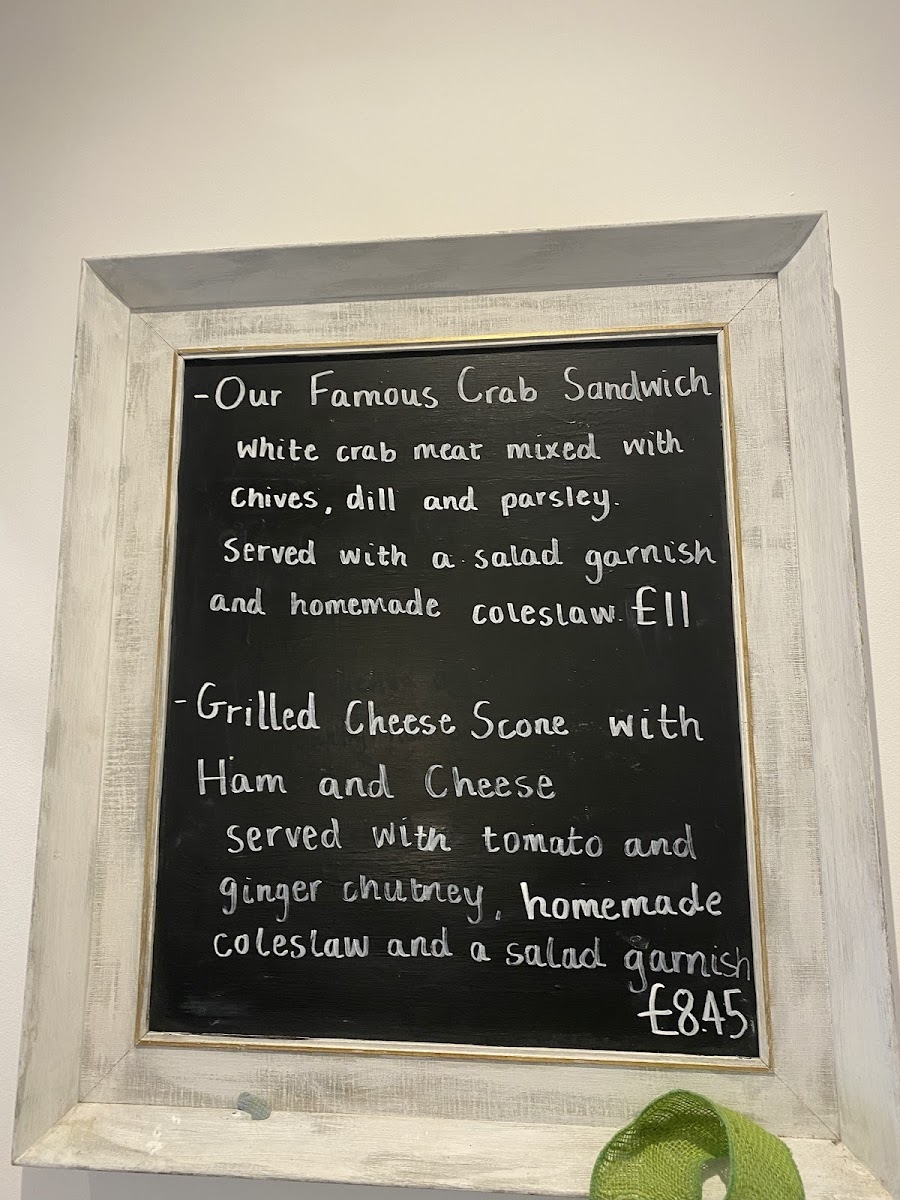 - Our Famous Crab Sandwich
White crab meat mixed with
Chives, dill and parsley.
Served with a salad garnish
and homemade coleslaw. £11
- Grilled Cheese Scone with
Ham and Cheese
served with tomato and
ginger chutney, homemade
coleslaw and a salad garnish
£8.45